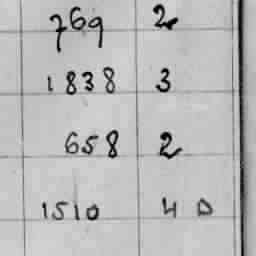 769 2
1838 3
658 2
1510 4 D